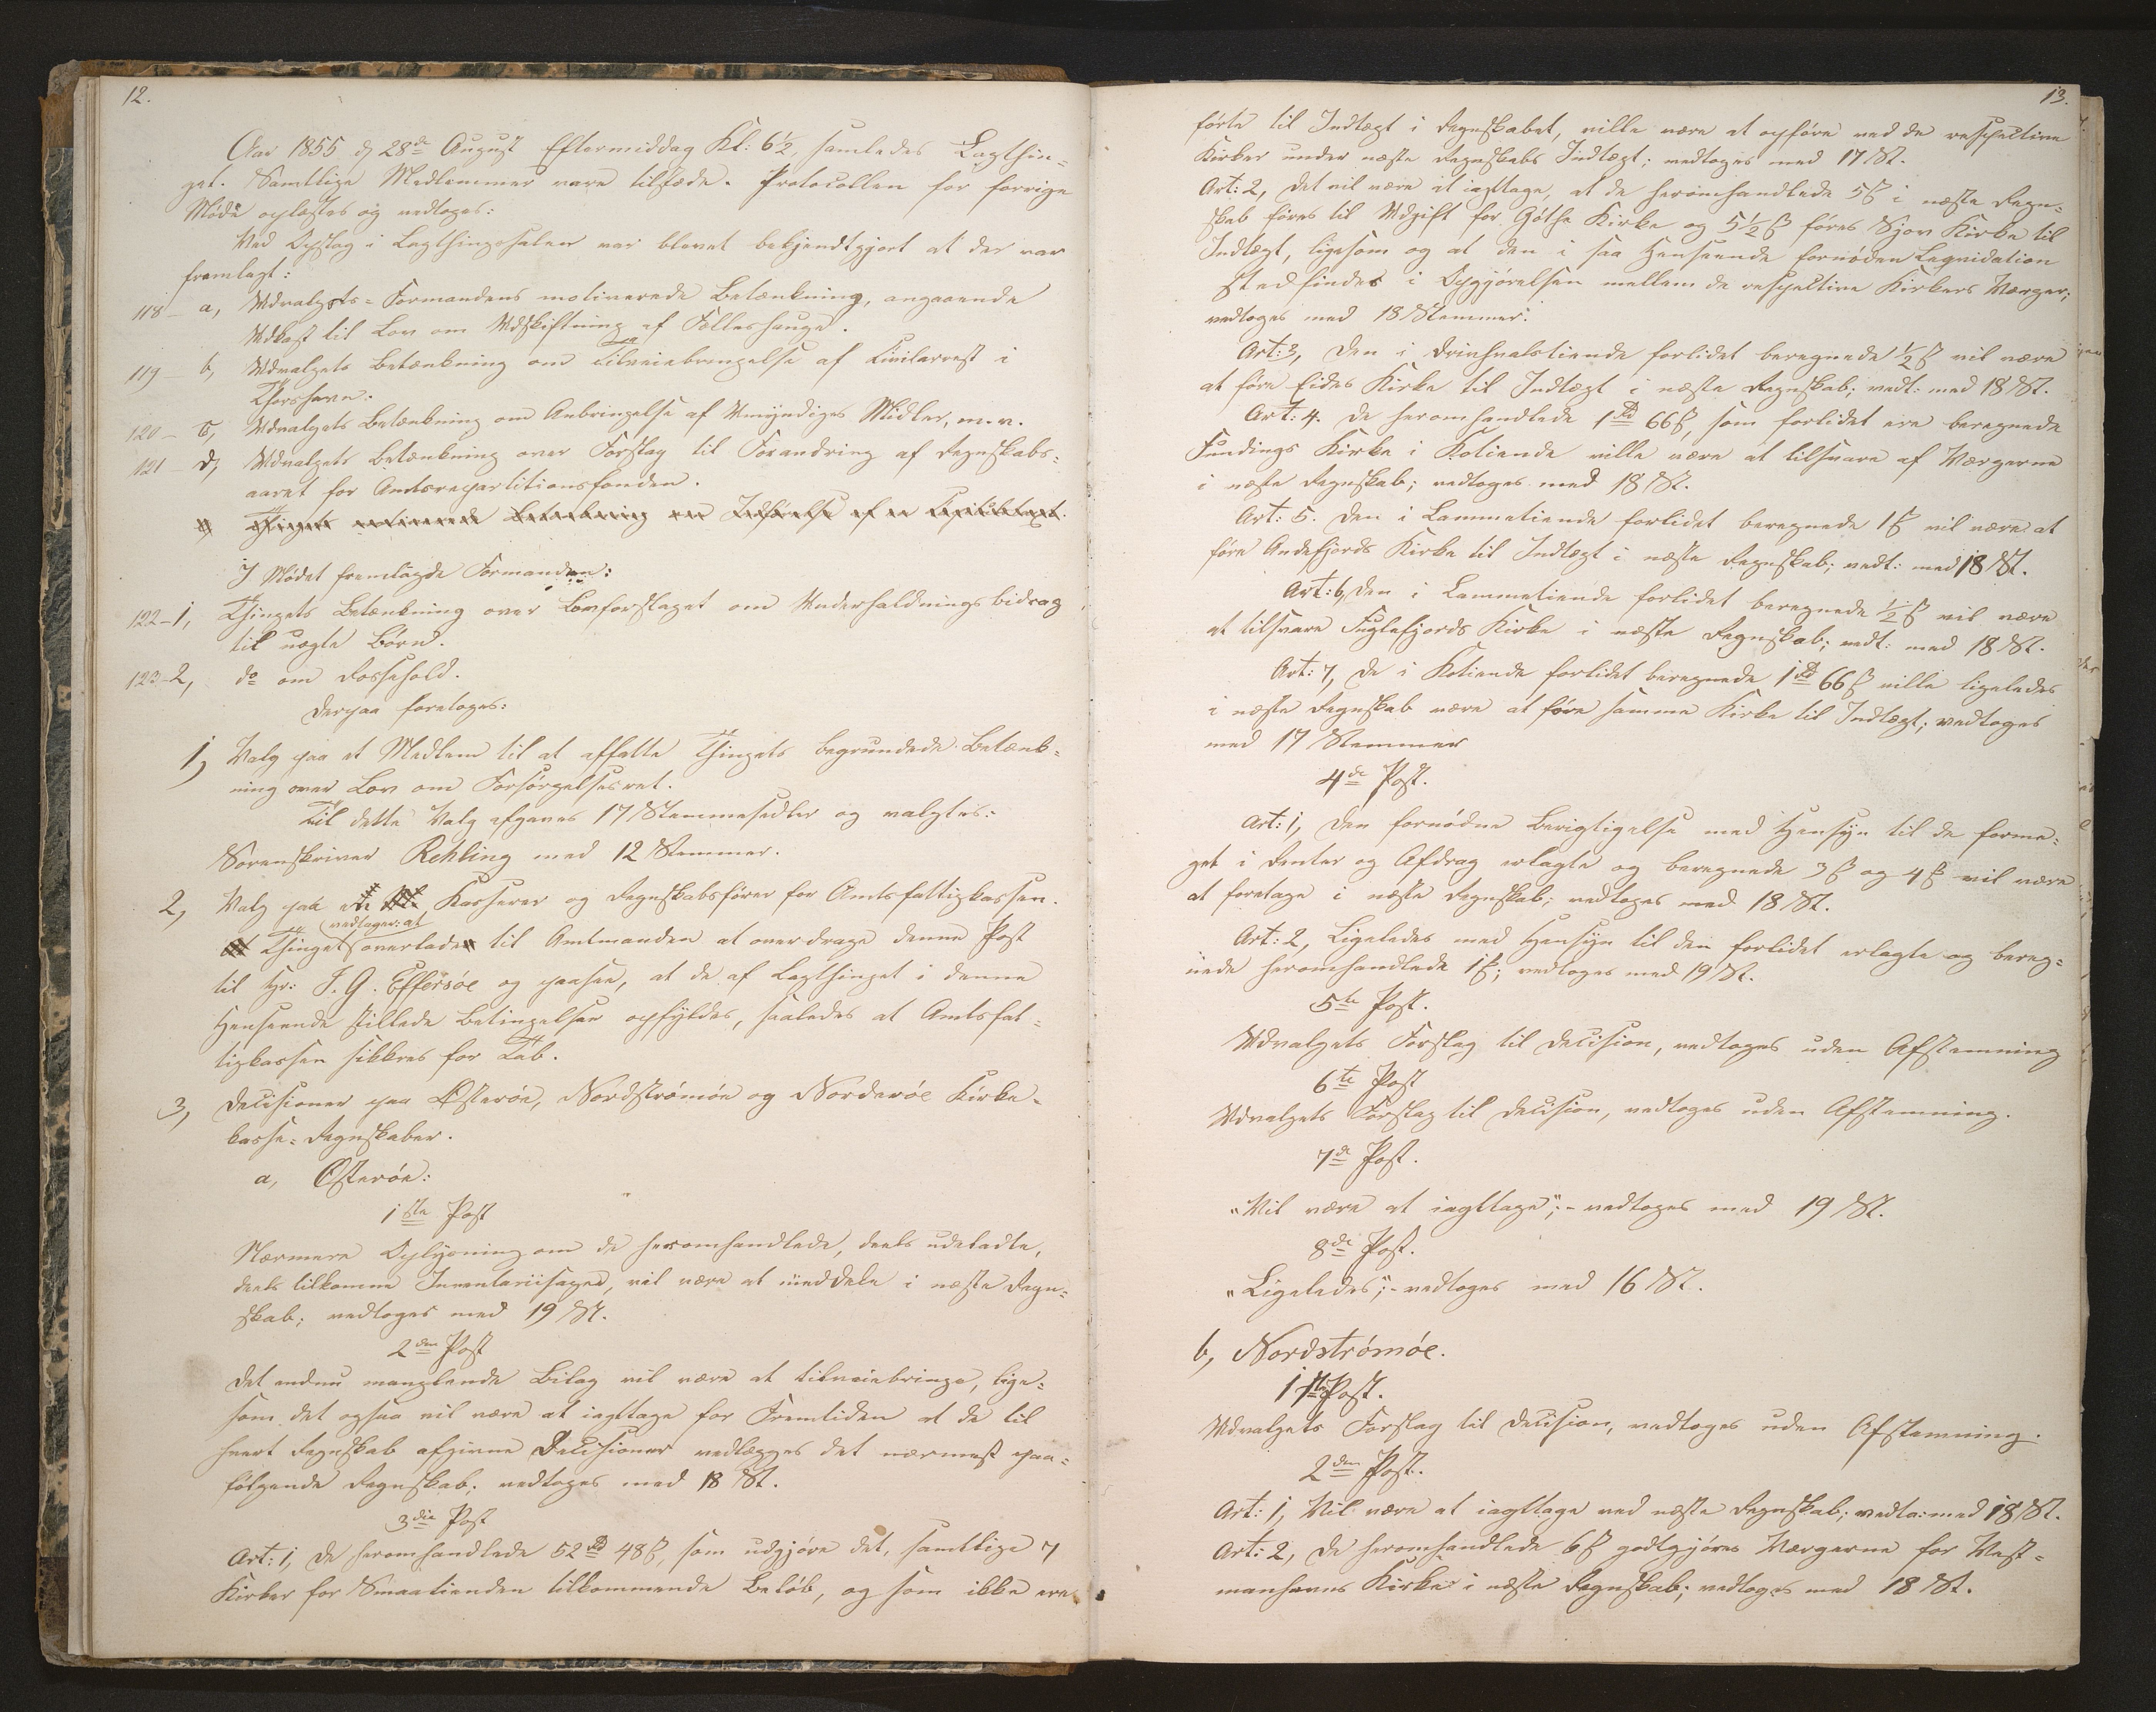 12.
Aar 1855 d 28de August Eftermiddag Kl: 6½, samledes Lagthin=
get. Samtlige Medlemmer vare tilstæde. Protocollen for forrige
Møde oplæstes og vedtoges:
Ved Opslag i Lagthingssalen var blevet bekjendtgjort at der var
fremlagt:
118 - a, Udvalgets-Formandens motiverede Betænkning, angaaende
Udkast til Lov om Udskiftning afÆlleshauge.
119 - b, Udvalgets Betænkning om Tilveiebringelse af Civilarrest i
Thorshavn.
120 - c, Udvalgets Betænkning om Anbringelse af Umyndiges Midler, m.v.
121 - d, Udvalgets Betænkning over Forslag til Forandring af Regnskabs=
aaret for Amtsrepartitionsfonden.
Thingets motiverede Betænkning om Indførelse af en
I Mødet fremlagde Formanden:
122 - 1, Thingets Betænkning over Lovforslaget om Underholdningsbidrag
til uægte Børn.
123 - 2, do om Rossehold.
Derpaa foretoges:
1, Valg paa et Medlem til at affatte Thingets begrundede Betænk=
ning over Lov om Forsørgelsesvæt.
Til dette Valg afgaves 17 Stemmesedler og valgtes:
Sorenskriver Rehling med 12 Stemmer.
2, Valg paa en Kasserer og Regnskabsfører for Amtsfattigkassen.
vedtager: at
Thinget overlader til Amtmanden at overdrage denne Post
til Hr: J. G. Effersöe og paasee, at de af Lagthinget i denne
Henseende stillede Betingelser opfyldes, saaledes at Amtsfat=
tigkassen sikkres for Tab.
3, Decisioner paa Østerøe, Nordstrømøe og Norderøe Kirke=
kasse-Regnskaber.
a, Østerøe:
1ste Post
Nærmere Oplysning om de heromhandlede, deels udeladte,
deels tilkomne Inventariisager, vil være at meddele i næste Regn=
skab; vedtoges med 19 St.
2den Post
Det endnu manglende Bilag vil være at tilveiebringe, lige=
som det ogsaa vil være at iagttage for Fremtiden at de til
hvert Regnskab afgivne Decisioner vedlægges det nærmest paa=
følgende Regnskab; vedtoges med 18 St.
3die Post
Art: 1, De heromhandlede 52 Rd 48 ß, som udgjøre det, samtlige 7
Kirker for Smaatienden tilkommende Beløb, og som ikke ere
13.
førte til Indtægt i Regnskabet, ville være at opføre ved de respective
Kirker under næste Regnskabs Indtægt; vedtoges med 17 St.
Art: 2, Det vil være at iagttage, at de heromhandlede 5 ß i næste Regn=
skab føres til Udgift for Gøthe Kirke og 5½ ß føres Sjov Kirke til
Indtægt, ligesom og at den i saa Henseende fornøden Leqvidation
stedfinder i Opgjørelsen mellem de respective Kirkers Værger;
vedtoges med 18 Stemmer.
Art: 3, Den i Drivhvalstiende forlidet beregnede ½ ß vil være
at føre Eides Kirke til Indtægt i næste Regnskab; vedt: med 18 St.
Art: 4. De heromhandlede 1 Rd 66 ß, som forlidet ere beregnede
Fundings Kirke i Kotiende ville være at tilsvare af Værgerne
i næste Regnskab; vedtoges med 18 St.
Art: 5. Den i Lammetiende forlidet beregnede 1 ß vil være at
føre Andefjords Kirke til Indtægt i næste Regnskab; vedt: med 18 St.
Art: 6, Den i Lammetiende forlidet beregnede ½ ß vil være
at tilsvare Fuglefjords Kirke i næste Regnskab; vedt: med 18 St.
Art: 7, De i Kotiende forlidet beregnede 1 Rd 66 ß ville ligeledes
i næste Regnskab være at føre samme Kirke til Indtægt; vedtoges
med 17 Stemmer
4de Post.
Art: 1, Den fornødne Berigtigelse med Hensyn til de forme=
get i Renter og Afdrag erlagte og beregnede 3 ß og 4 ß vil være
at foretage i næste Regnskab; vedtoges med 18 St.
Art: 2, Ligeledes med Hensyn til den forlidet erlagte og bereg=
nede heromhandlede 1 ß; vedtoges med 19 St.
5te Post.
Udvalgets Forslag til Decision, vedtoges uden Afstemning
6te Post
Udvalgets Forslag til Decision, vedtoges uden Afstemning.
7de Post.
"Vil være at iagttage"; - vedtoges med 19 St.
8de Post.
"Ligeledes"; - vedtoges med 16 St.
b, Nordstrømøe.
1ste Post.
Udvalgets Forslag til Decision, vedtoges uden Afstemning.
2den Post.
Art: 1, Vil være at iagttage ved næste Regnskab; vedto: med 18 St.
Art: 2, De heromhandlede 6 ß godtgjøres Værgerne for Vest=
manhavns Kirke i næste Regnskab; vedtoges med 18 St.